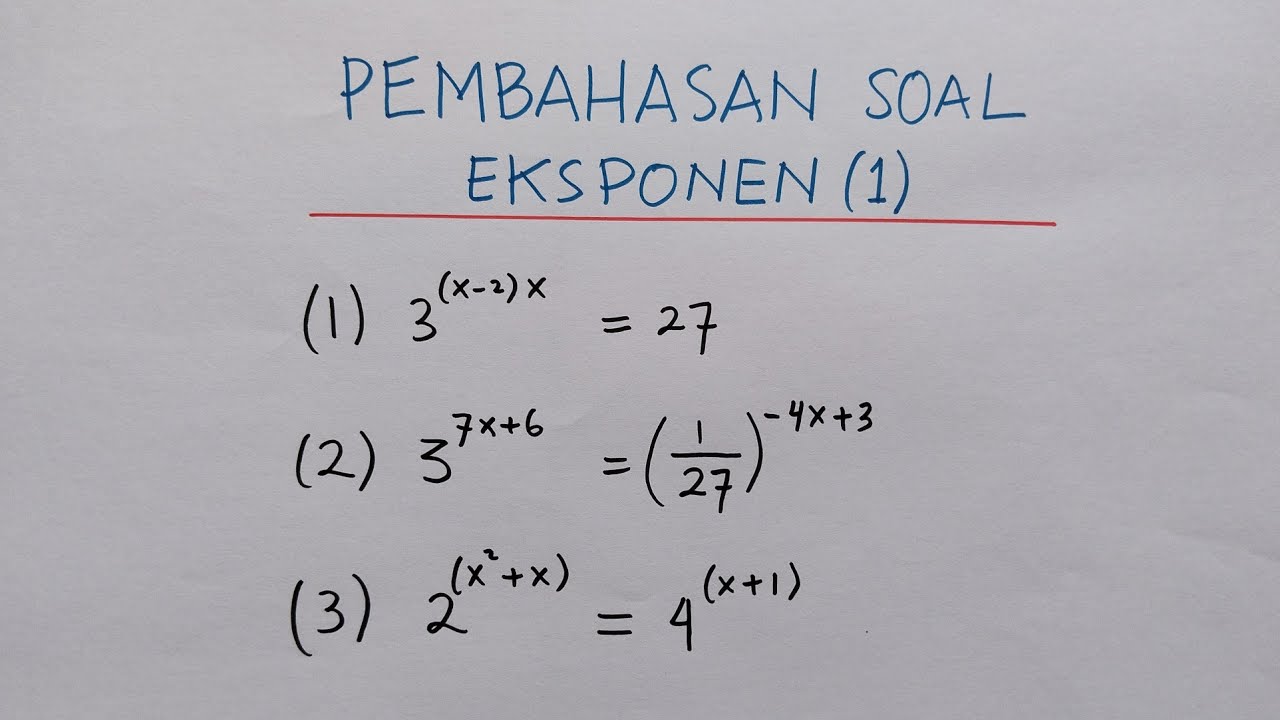 PEMBAHASAN SOAL
EKSPONEN (1)
(1) 3^(x-2)x = 27
(2) 3^7x+6 = (1/27)^-4x+3
(3) 2^(x²+x) = 4^(x+1)